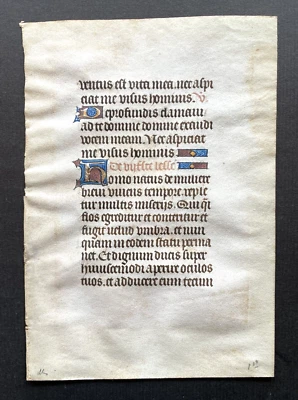 ventus est vita mea. nec aspi
ciat me visus hominis. V
De profundis clamavi
ad te domine domine exaudi
vocem meam. Nec aspiciat
me visus hominis
Homo natus de muliere
brevi vivens tempore reple
tur multis miserijs. Qui qu
flos egreditur et conteritur et
fugit velud umbra. et nun
quam in eodem statu perma
net. Et dignum ducis super
huiuscemodi aperire oculos
tuos. et adducere eum tecum